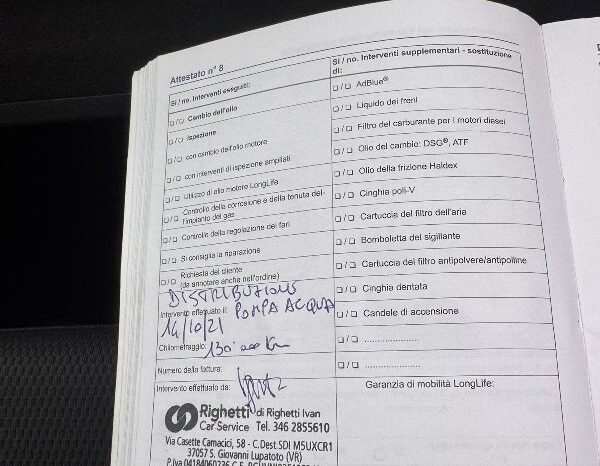 Attestato n° 8
Sì / no. Interventi eseguiti:
❏ / ❏ Cambio dell'olio
❏ / ❏ Ispezione
❏ / ❏ con cambio dell'olio motore
❏ / ❏ con interventi di ispezione ampliati
❏ / ❏ Utilizzo di olio motore LongLife
❏ / ❏ Controllo della corrosione e della tenuta del-
l'impianto del gas
❏ / ❏ Controllo della regolazione dei fari
❏ / ❏ Si consiglia la riparazione
❏ / ❏ Richiesta del cliente
(da annotare anche nell'ordine)
DISTRIBUZIONE
Intervento effettuato il: POMPA ACQUA
14/10/21
Chilometraggio: 130'000 Km
Numero della fattura:
Intervento effettuato da:
Righetti di Righetti Ivan
Car Service Tel. 346 2855610
Via Casette Camacici, 58 - C.Dest.SDI M5UXCR1
37057 S. Giovanni Lupatoto (VR)
Sì / no. Interventi supplementari - sostituzione
di:
❏ / ❏ AdBlue®
❏ / ❏ Liquido dei freni
❏ / ❏ Filtro del carburante per i motori diesel
❏ / ❏ Olio del cambio: DSG®, ATF
❏ / ❏ Olio della frizione Haldex
❏ / ❏ Cinghia poli-V
❏ / ❏ Cartuccia del filtro dell'aria
❏ / ❏ Bomboletta del sigillante
❏ / ❏ Cartuccia del filtro antipolvere/antipolline
❏ / ❏ Cinghia dentata
❏ / ❏ Candele di accensione
❏ / ❏ ....................
❏ / ❏ ....................
Garanzia di mobilità LongLife: